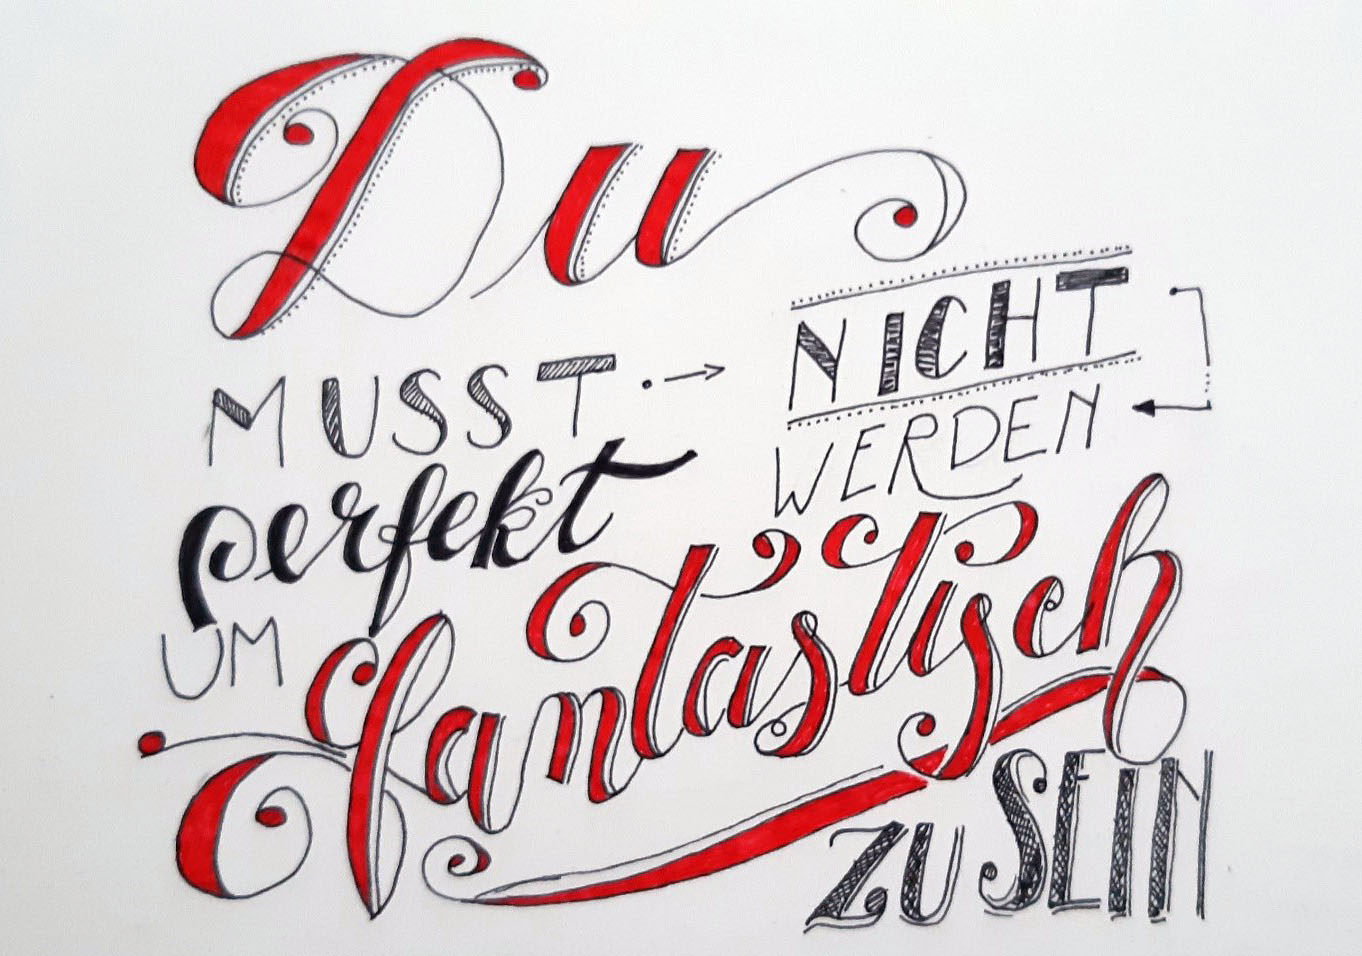 Du
MUSST NICHT
perfekt WERDEN
UM fantastisch
ZU SEIN